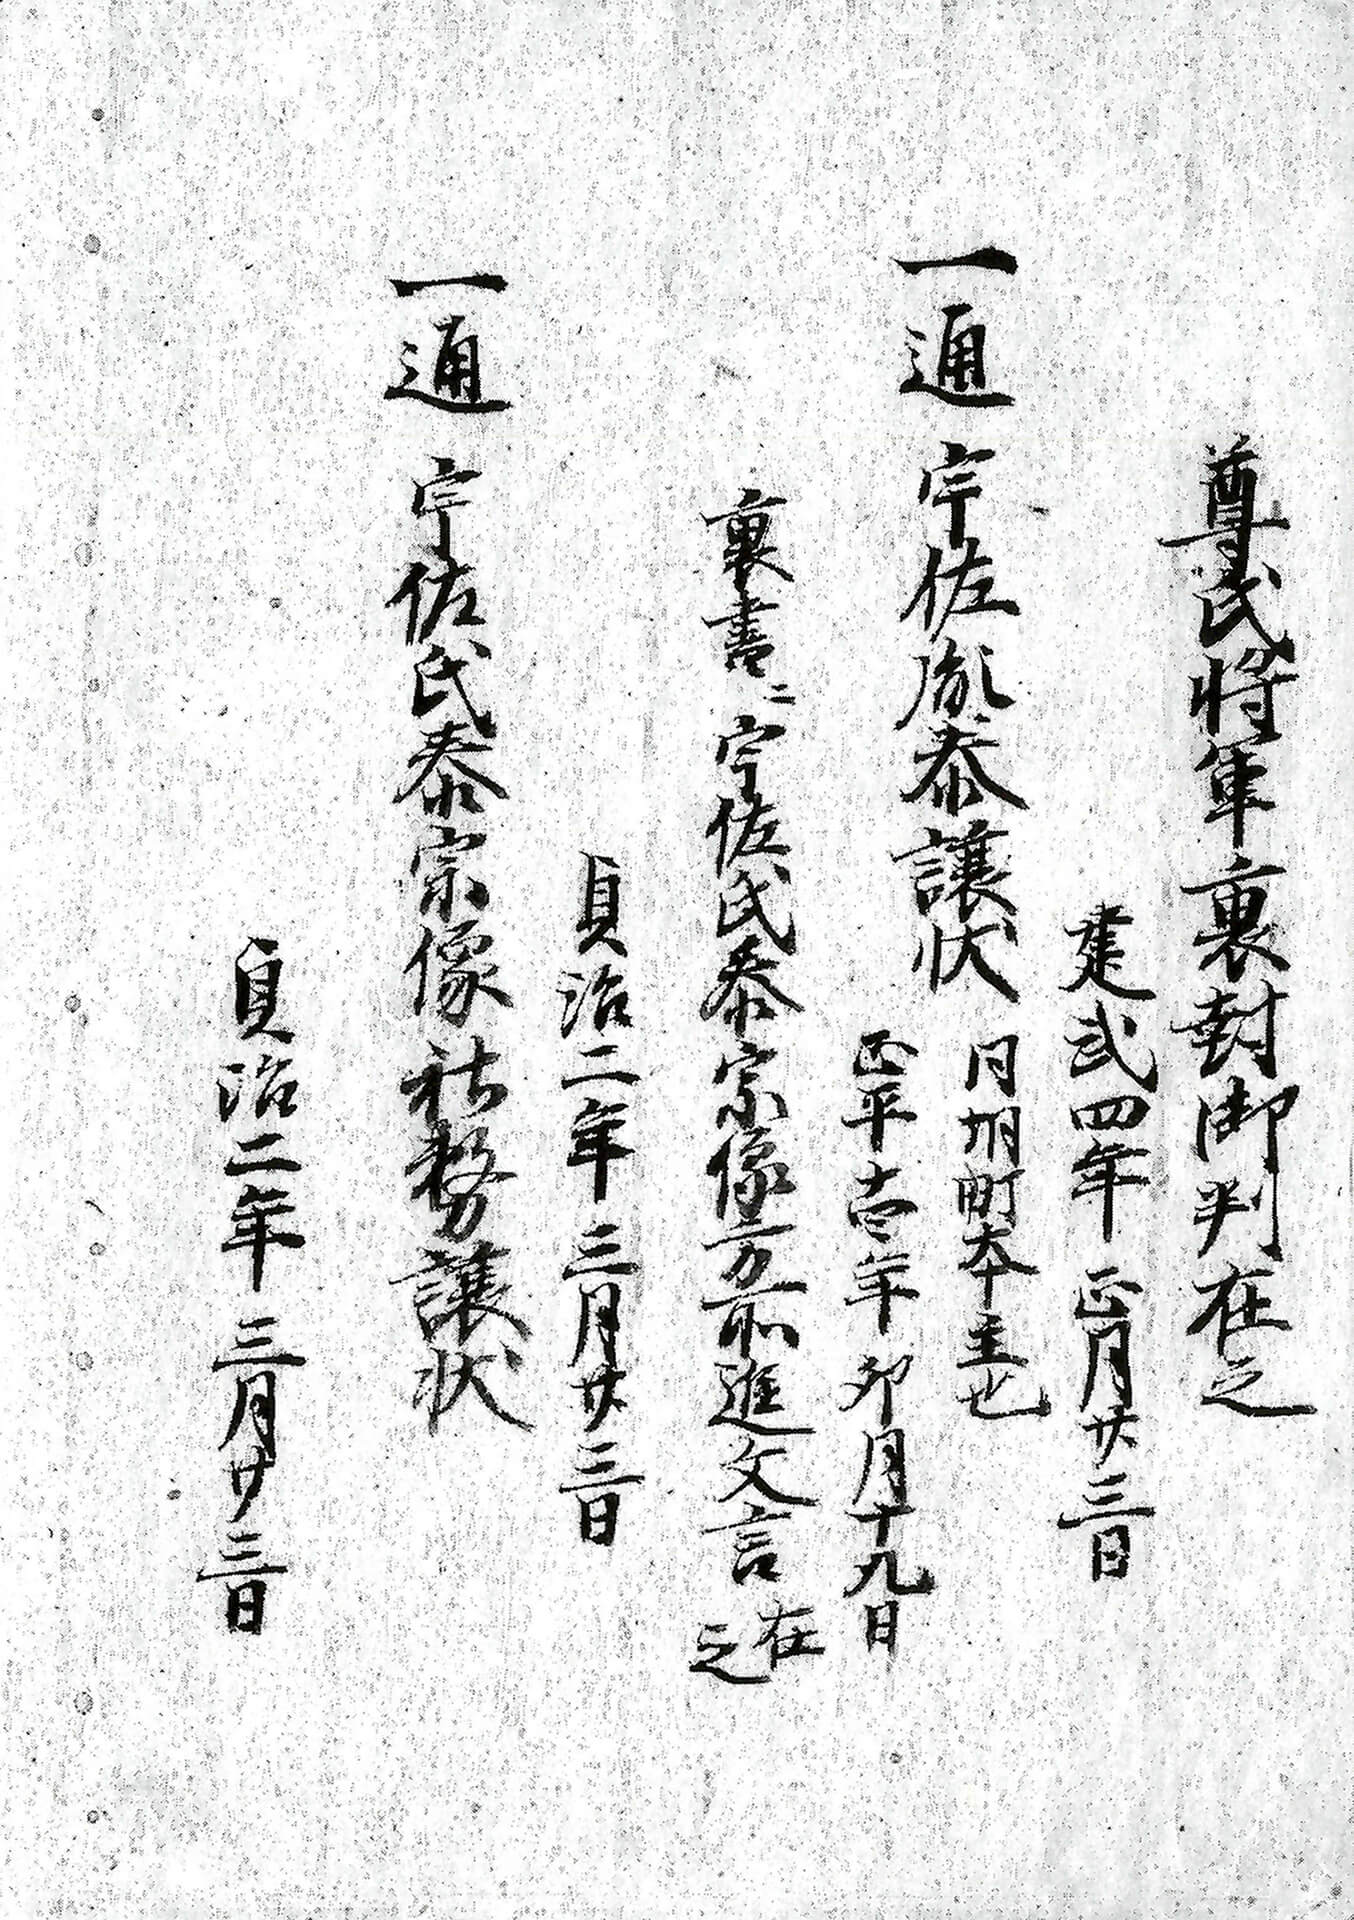 尊氏将軍裏封御判在之
建武四年正月廿三日
一通 宇佐胤泰譲状
同 町本主也
正平十壱年卯月十九日
裏書ニ宇佐氏泰宗像 進文言在之
貞治二年三月廿三日
一通 宇佐氏泰宗像社務譲状
貞治二年三月廿三日